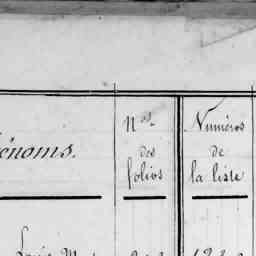 énoms.
Nos.
des
folios
Numéros
de
la liste